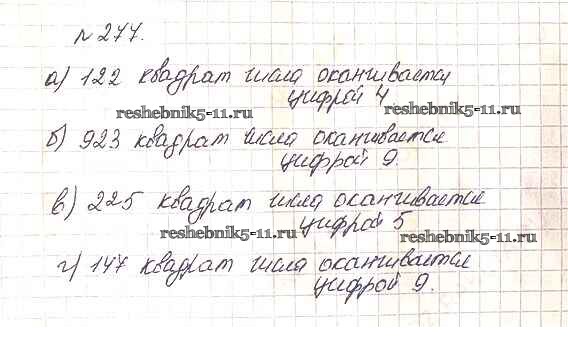 № 277.
а) 122 квадрат числа оканчивается
цифрой 4
reshebnik5-11.ru
б) 923 квадрат числа оканчивается
цифрой 9.
в) 225 квадрат числа оканчивается
цифрой 5
reshebnik5-11.ru
г) 147 квадрат числа оканчивается
цифрой 9.